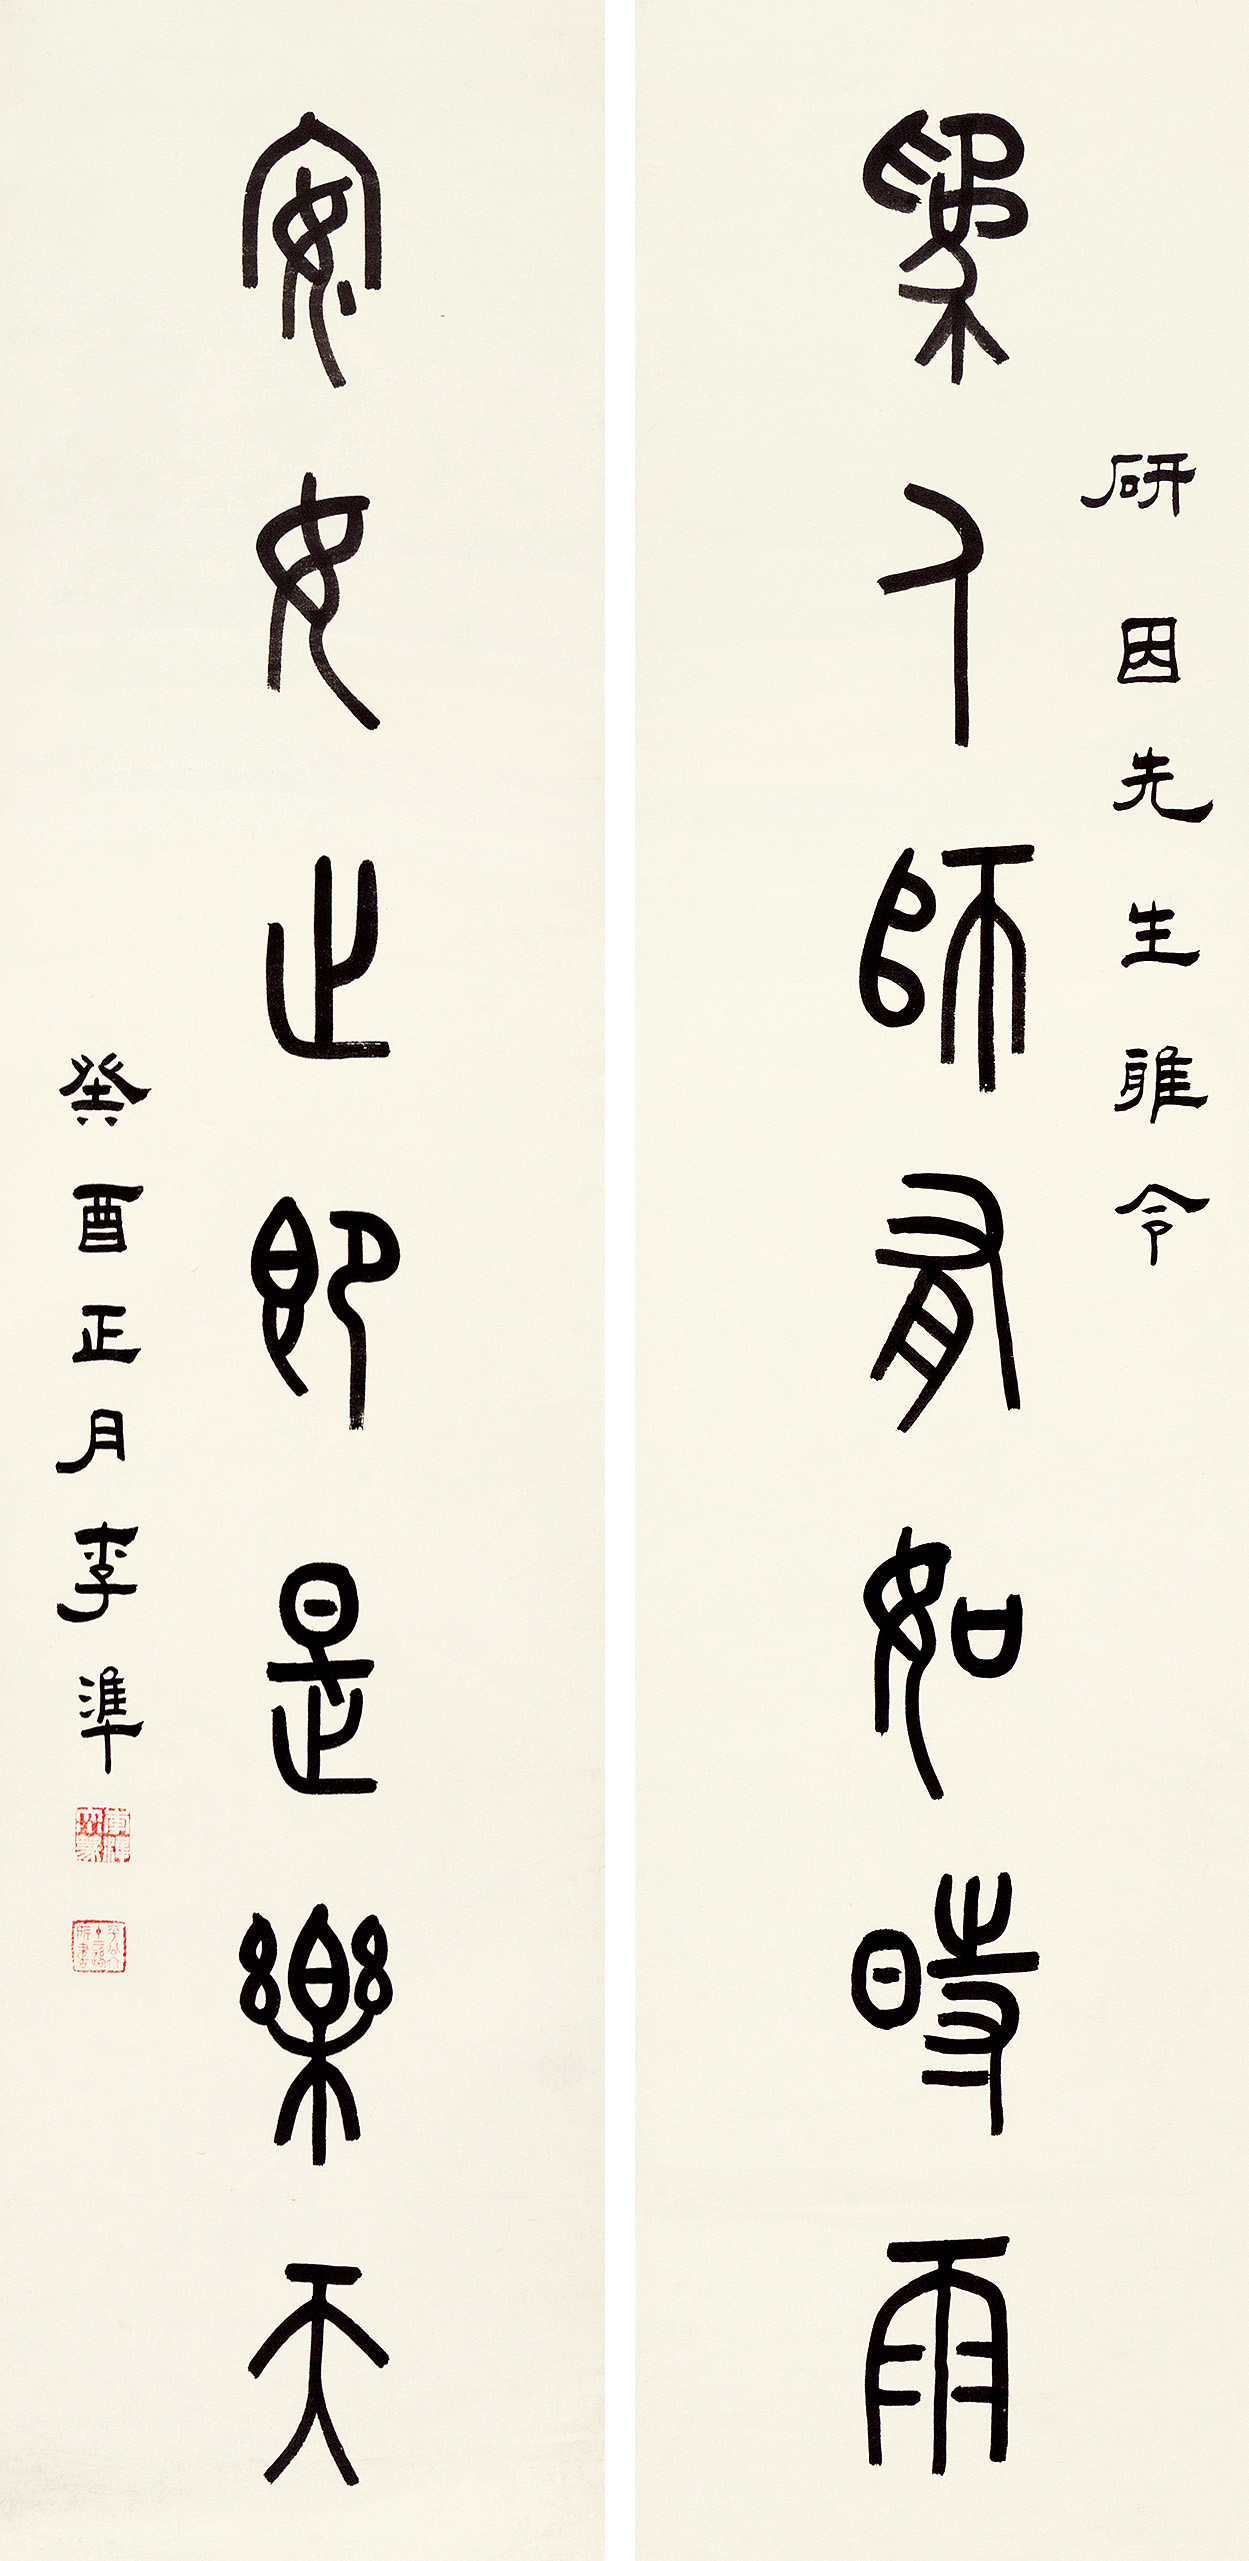 研因先生雅令
人師有如時雨
安女止即是樂天
癸酉正月李準